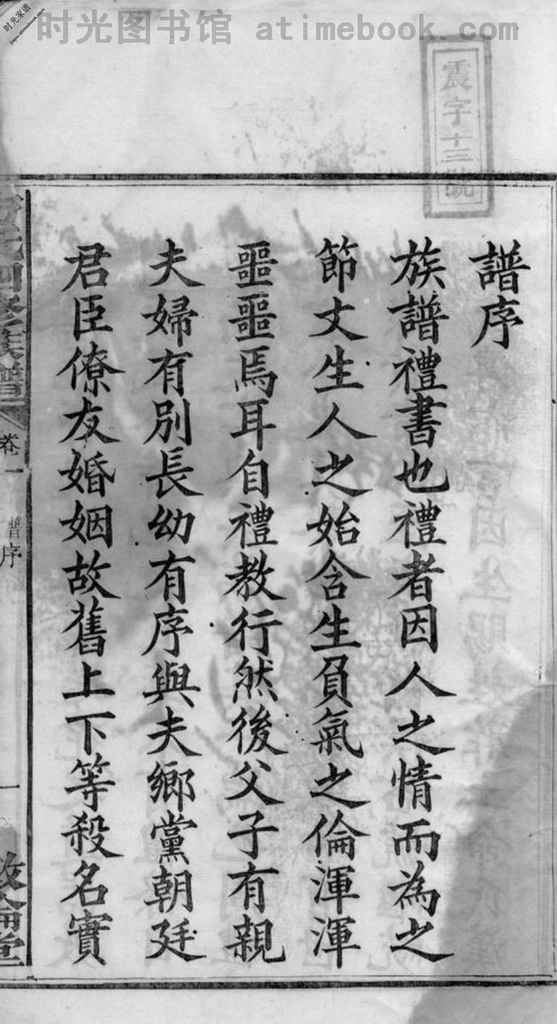 时光图书馆 atimebook.com
时光家谱
震字十三號
譜序
族譜禮書也禮者因人之情而為之
節文生人之始含生負氣之倫渾渾
噩噩焉耳自禮教行然後父子有親
夫婦有別長幼有序與夫鄉黨朝廷
君臣僚友婚姻故舊上下等殺名實
四修族譜
卷一
譜序
一
敦倫堂